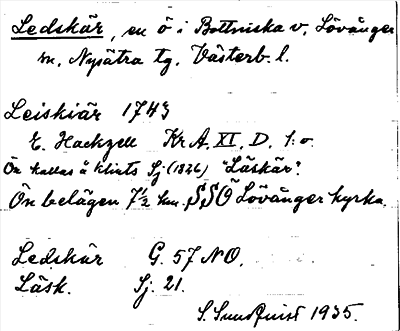 Ledskär, en ö i Bottniska v, Lövånger
m, Nysätra tg. Västerb. l.
Leiskiär 1743
E. Hackzell Kr A, XI, D, 1:o
Ön kallas å Klints Sj (1836) "Läskär".
Ön belägen 7½ km. SSÖ Lövånger kyrka.
Ledskär G. 57 NO.
Läsk. Sj. 21.
S. Sundquist 1935.